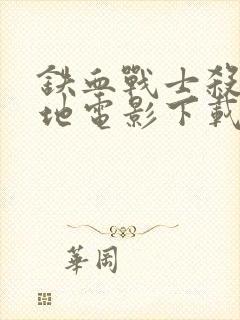 鉄血戰士殺
地電影下載
華岡